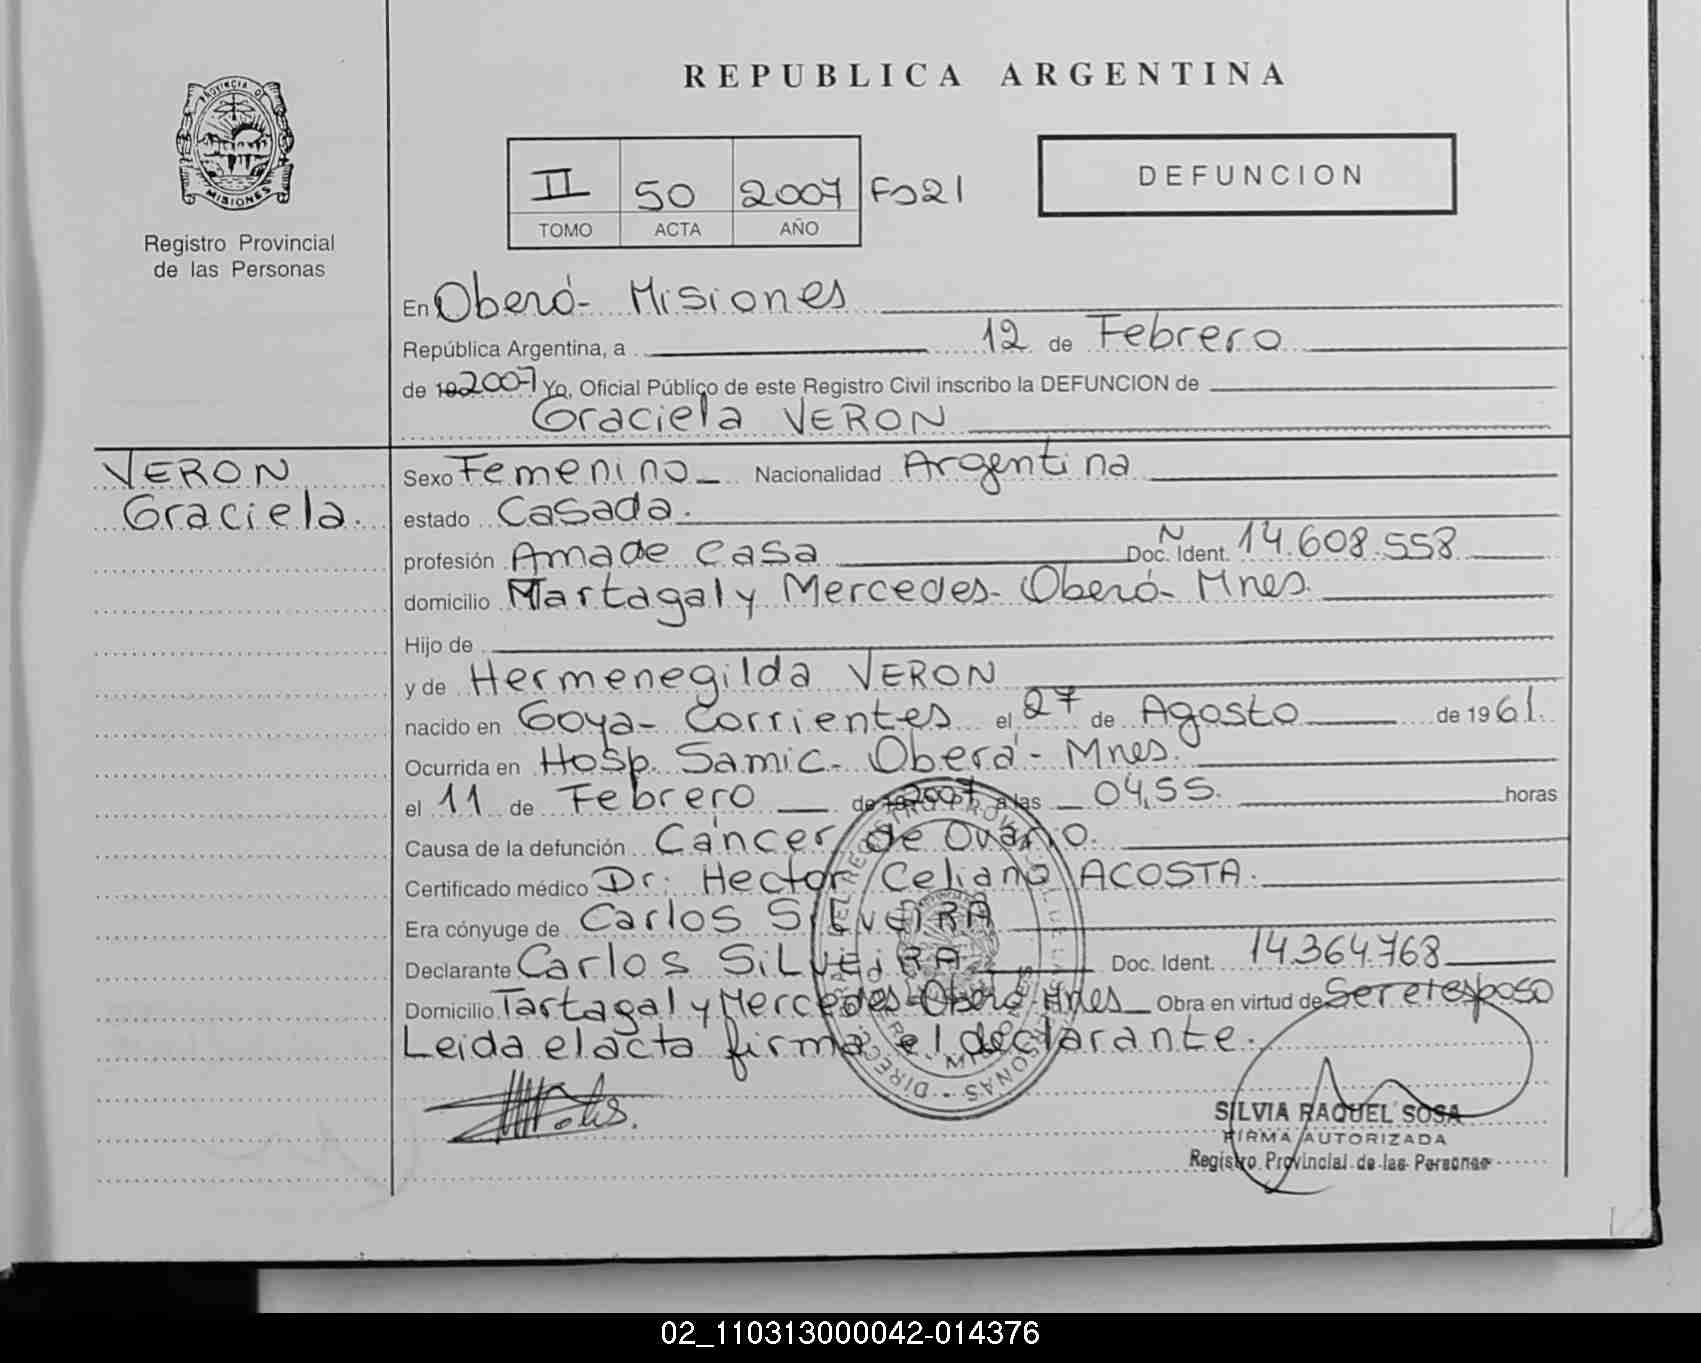 REPUBLICA ARGENTINA
PROVINCIA DE
MISIONES
Registro Provincial
de las Personas
II 50 2007 Fo21
TOMO ACTA AÑO
DEFUNCION
En Oberá- Misiones
República Argentina, a 12 de Febrero
de 2007 Yo, Oficial Público de este Registro Civil inscribo la DEFUNCION de
Graciela VERON
VERON
Graciela.
Sexo Femenino Nacionalidad Argentina
estado Casada.
profesión Ama de Casa Doc. Ident. N 14.608.558
domicilio Martagal y Mercedes- Oberá- Mnes.
Hijo de
y de Hermenegilda VERON
nacido en Goya- Corrientes el 27 de Agosto de 1961.
Ocurrida en Hosp. Samic- Oberá- Mnes.
el 11 de Febrero de 2007 a las 04,55. horas
Causa de la defunción Cáncer de Ovario.
Certificado médico Dr: Hector Celiano ACOSTA.
Era cónyuge de Carlos SiLVeiRA
Declarante Carlos SiLVeiRA Doc. Ident. 14.364.768
Domicilio Tartagal y Mercedes- Oberá- Mnes Obra en virtud de Ser el esposo
Leida el acta firma el declarante.
SILVIA RAQUEL SOSA
FIRMA AUTORIZADA
Registro Provincial de las Personas
02_110313000042-014376